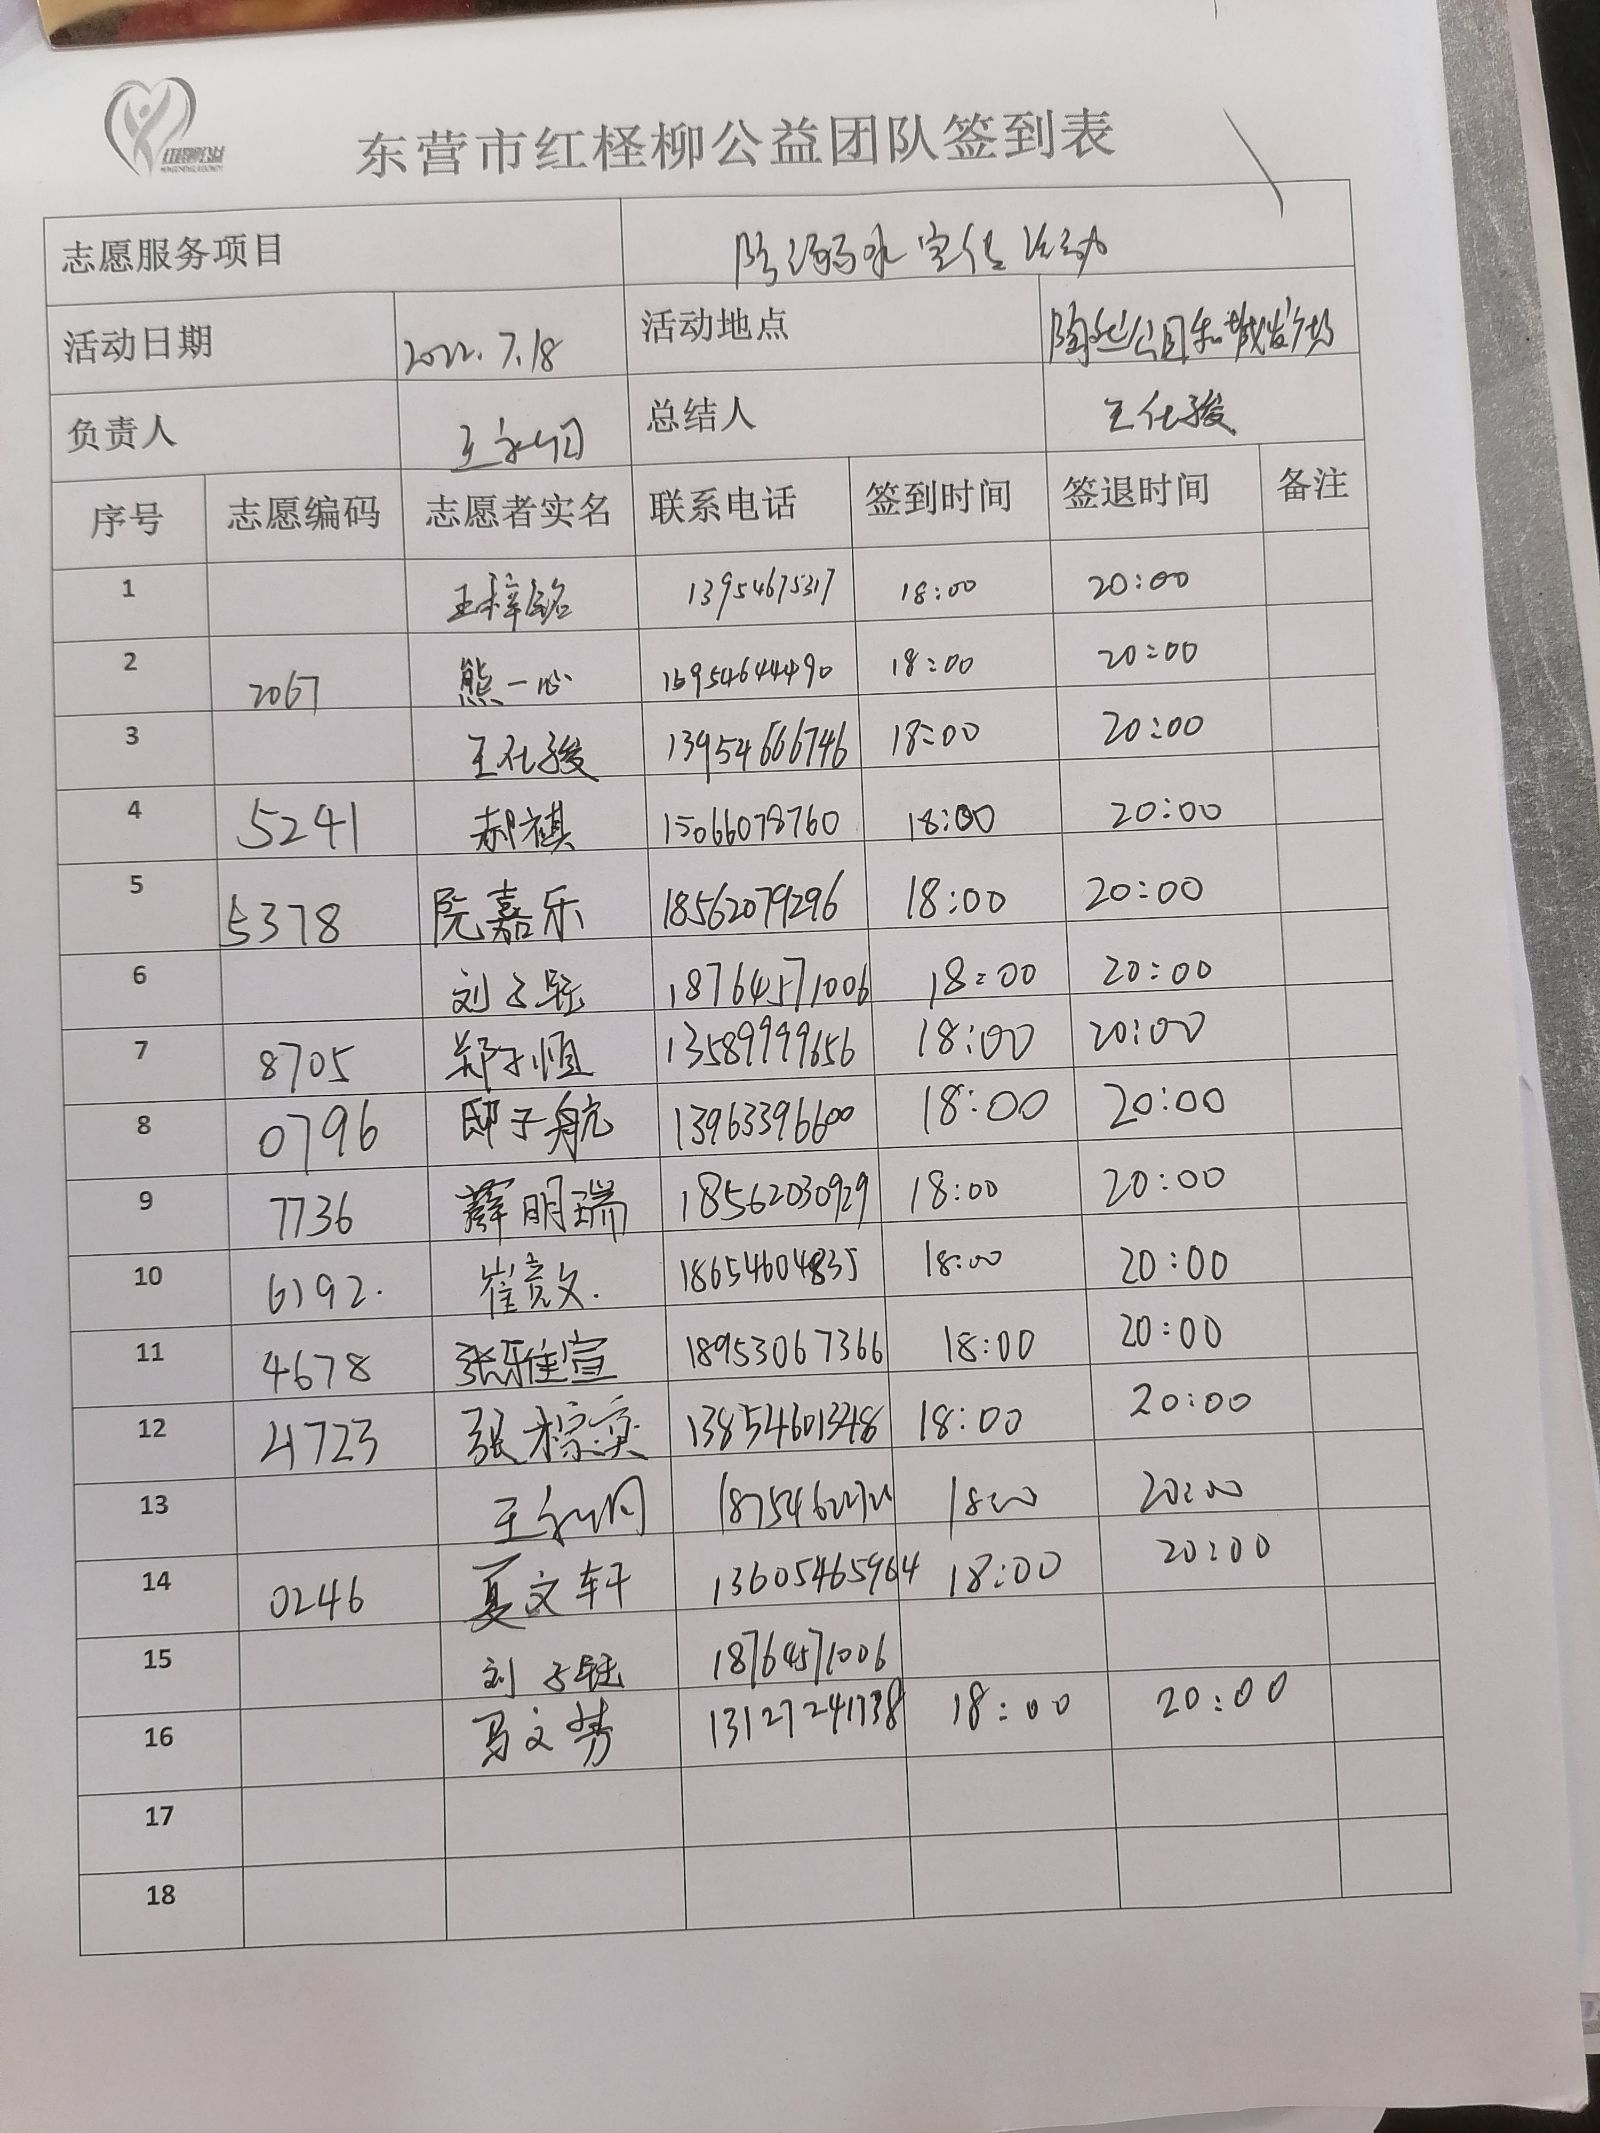 东营市红柽柳公益团队签到表
志愿服务项目 防溺水宣传活动
活动日期 2022.7.18 活动地点
负责人 总结人 王仕骏
序号 志愿编码 志愿者实名 联系电话 签到时间 签退时间 备注
1 王梓铭 13954675317 18:00 20:00
2 2067 熊一心 18:00 20:00
3 王仕骏 13954666746 18:00 20:00
4 5241 郝祺 15066078760 18:00 20:00
5 5378 阮嘉乐 18562079296 18:00 20:00
6 刘子钰 18764571006 18:00 20:00
7 8705 郑子恒 13589999656 18:00 20:00
8 0796 邸子航 13963396600 18:00 20:00
9 7736 薛明瑞 18562030929 18:00 20:00
10 6192. 崔竞文. 18654604835 18:00 20:00
11 4678 张雅宣 18953067366 18:00 20:00
12 4723 张 13854601348 18:00 20:00
13 18:00 20:00
14 0246 夏文轩 13605465964 18:00 20:00
15 刘子钰 18764571006
16 马文秀 13127241738 18:00 20:00
17
18